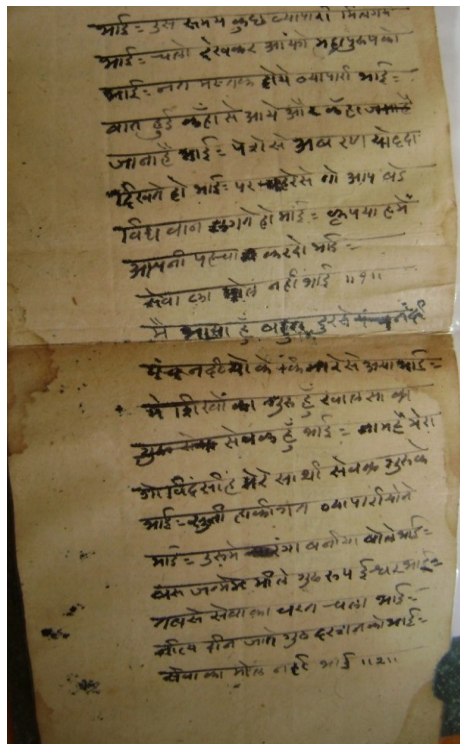 भाई = उस समय कुछ व्यापारी मिलगये
भाई = चलो देखकर आंये महापुरुषको
भाई = नत मस्तक होये व्यापारी भाई =
बात हुई कहाँ से आये और कँहा
जाना है भाई = पेशे से योद्दा
दिखते हो भाई = पर चहेरेसे तो आप बडे
विध वान लगते हो भाई = कृपया हमें
आपनी पहचान करदो भाई =
सेवा का मोल नहीं भाई ॥१॥
मै आया हुँ बहुत दुरसे
पंच नदीयो के से आया भाई =
मे शिखों का गुरु हुँ खालसा का
सेवक हुँ भाई = नाम है मेरा
गोविंदसींह मेरे साथी सेवक गुरुके
भाई = सुनी हकीगत व्यापारीयोने
भाई = बोले भाई =
मीले गुरु रूप ईश्वर भाई =
तबसे सेवा का चला भाई =
जाते गुरु दरशनको भाई =
सेवा का मोल नही भाई ॥२॥